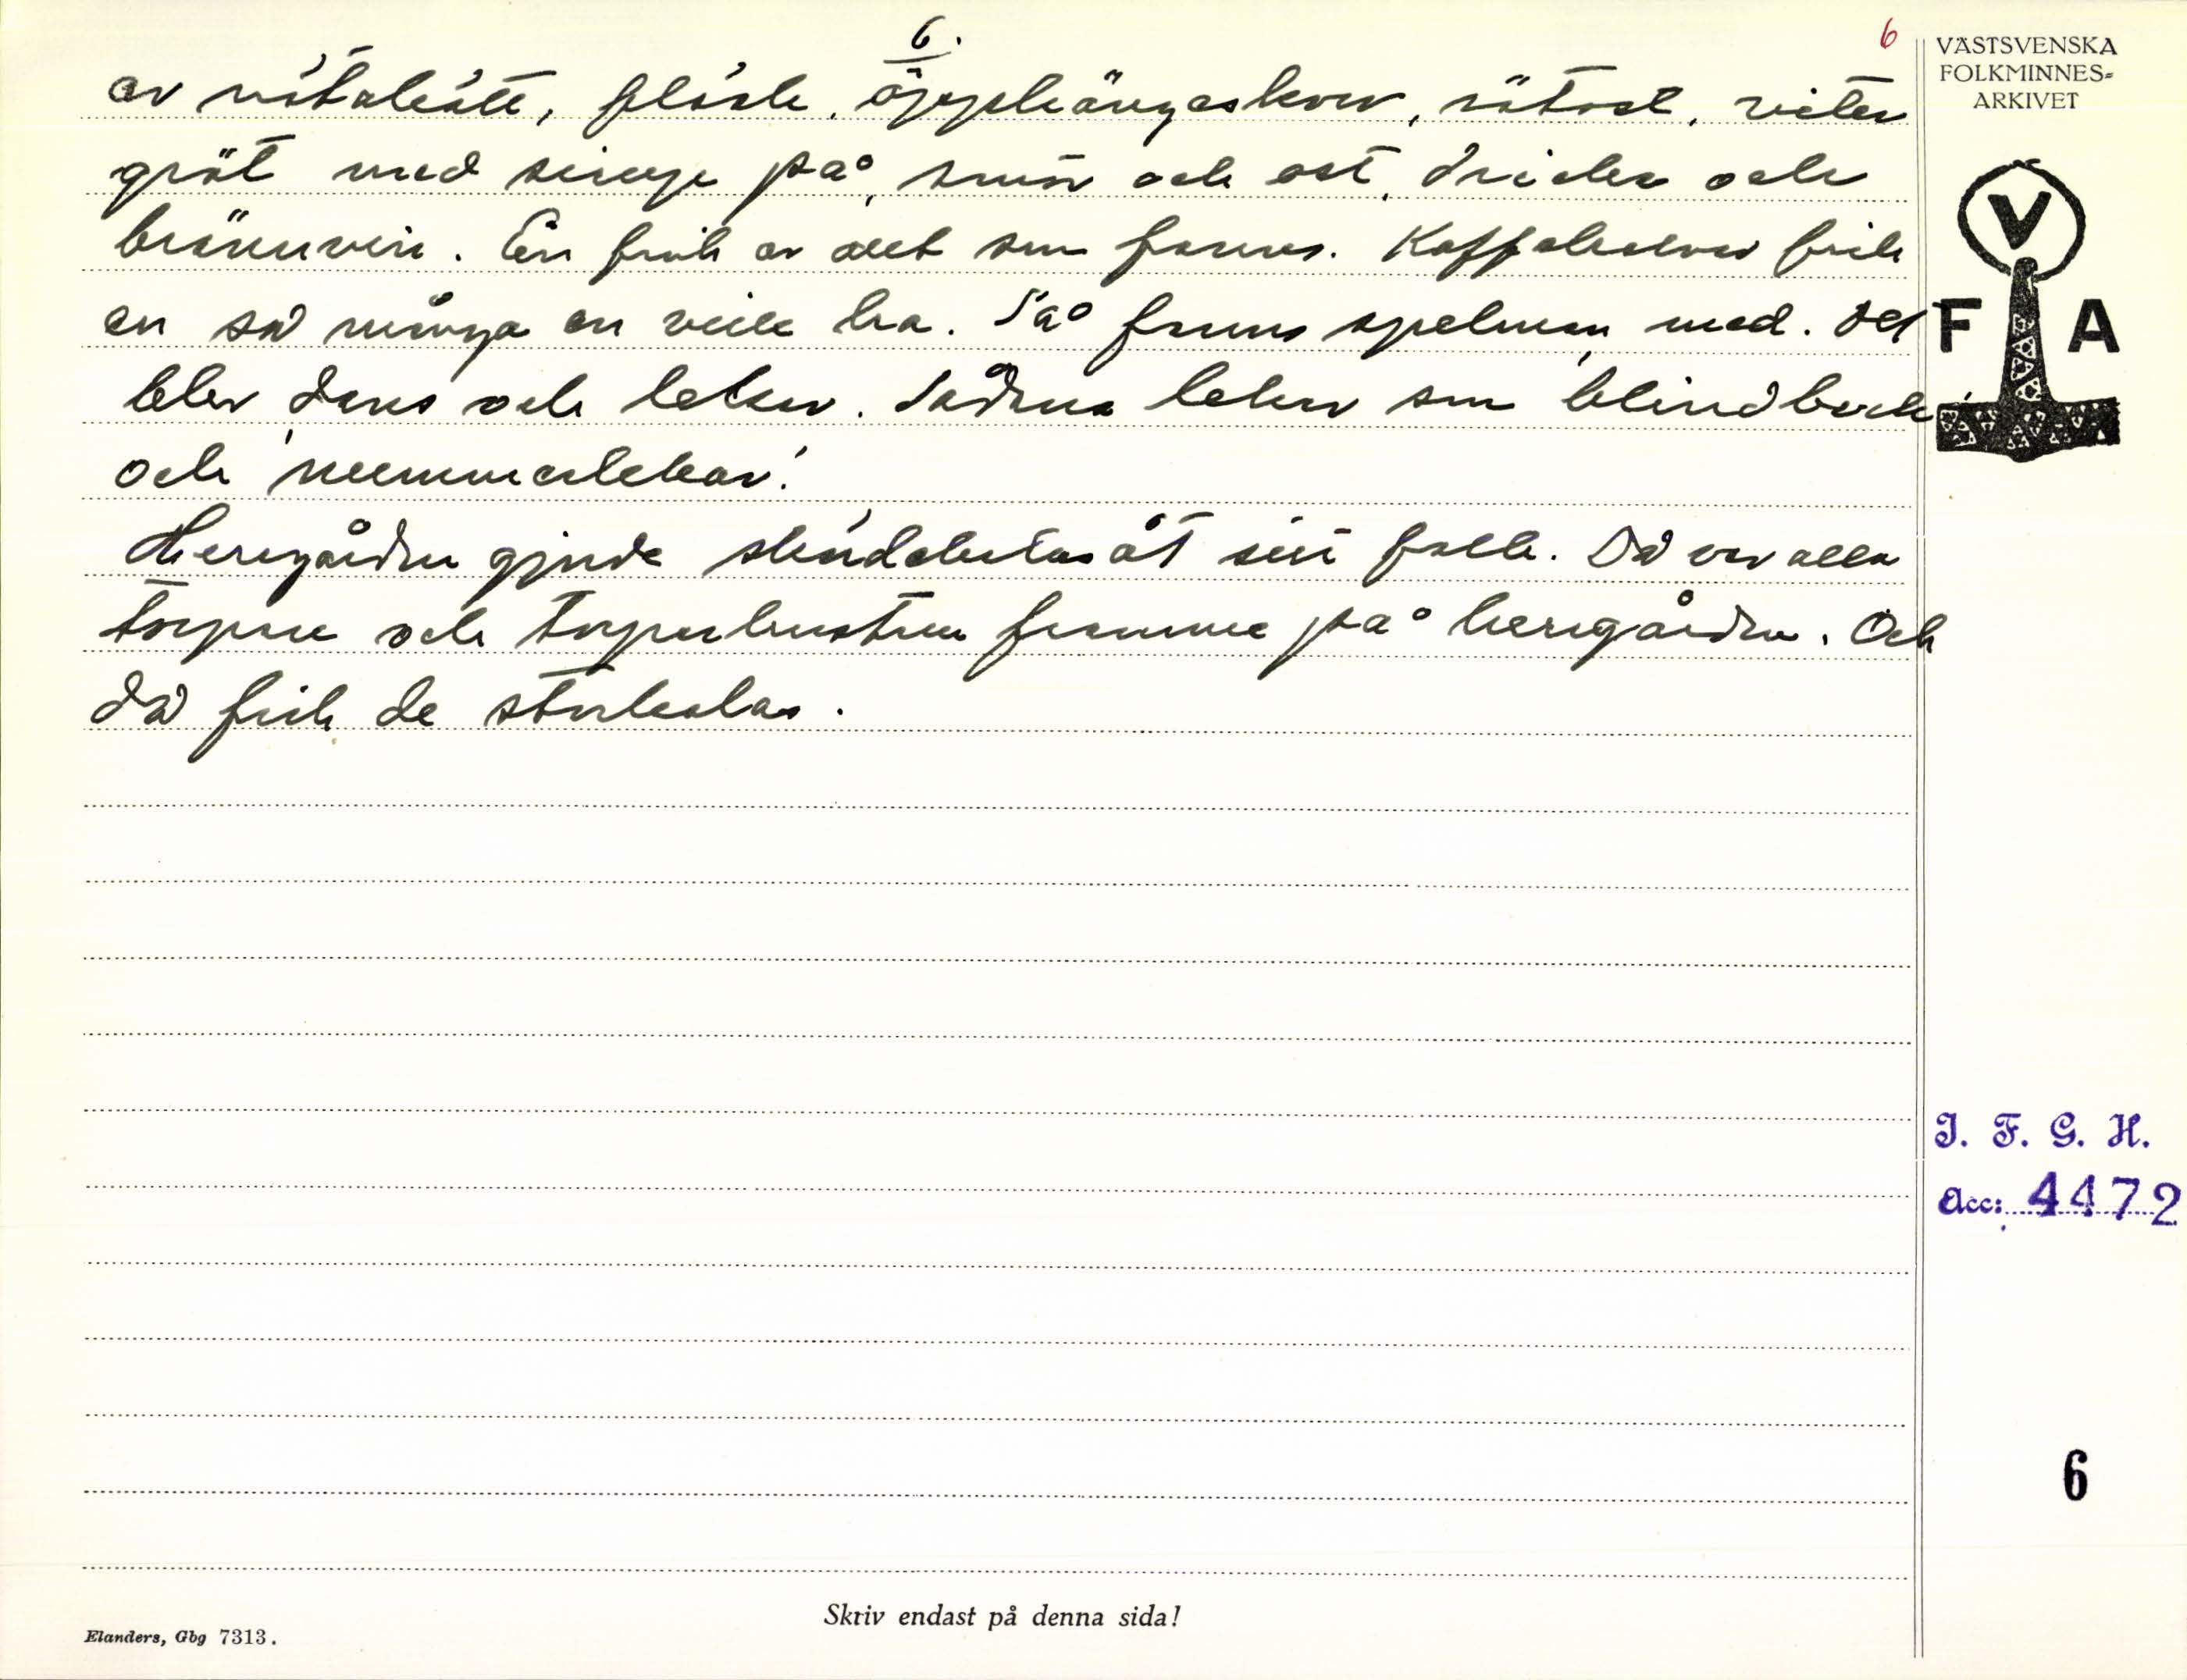 6.
6
av nötakött, fläsk, äppleängaskov, rötost, riter
gröt med sirup på, smör och ost, dricka och
brännvin. En fick av allt som fanns. Kaffekoker fick
en så många en ville ha. Så fanns spelman med. Det
blev dans och lekar. Sådana lekar som 'blindbock'
och 'nummerlekar'.
Herrgården gjorde slåndakalas åt sitt folk. Då var alla
torpare och torparhustrur framme på herrgården. Och
då fick de storkalas.
VÄSTSVENSKA
FOLKMINNES=
ARKIVET
V
F A
I. F. G. H.
Acc: 4472
6
Skriv endast på denna sida!
Elanders, Gbg 7313.